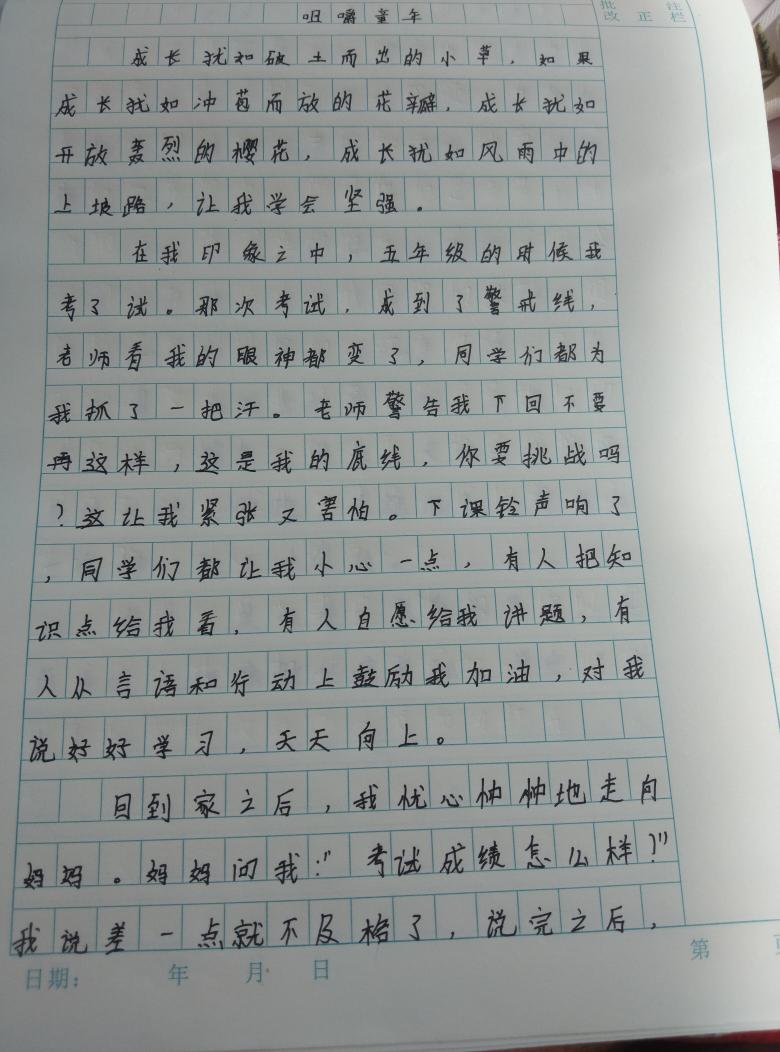 批 注
改 正 栏
咀嚼童年
成长犹如破土而出的小草,如果
成长我如冲苞而放的花辦,成长犹如
开放轰烈的樱花,成长犹如风雨中的
上坡路,让我学会坚强。
在我印象之中,五年级的时候我
考了试。那次考试,成到了警戒线,
老师看我的眼神都变了,同学们都为
我抓了一把汗。老师警告我下回不要
再这样,这是我的底线,你要挑战吗
?这让我紧张又害怕。下课铃声响了
,同学们都让我小心一点,有人把知
识点给我看,有人自愿给我讲题,有
人从言语和行动上鼓励我加油,对我
说好好学习,天天向上。
回到家之后,我忧心忡忡地走向
妈妈。妈妈问我:"考试成绩怎么样?"
我说差一点就不及格了,说完之后,
日期: 年 月 日
第